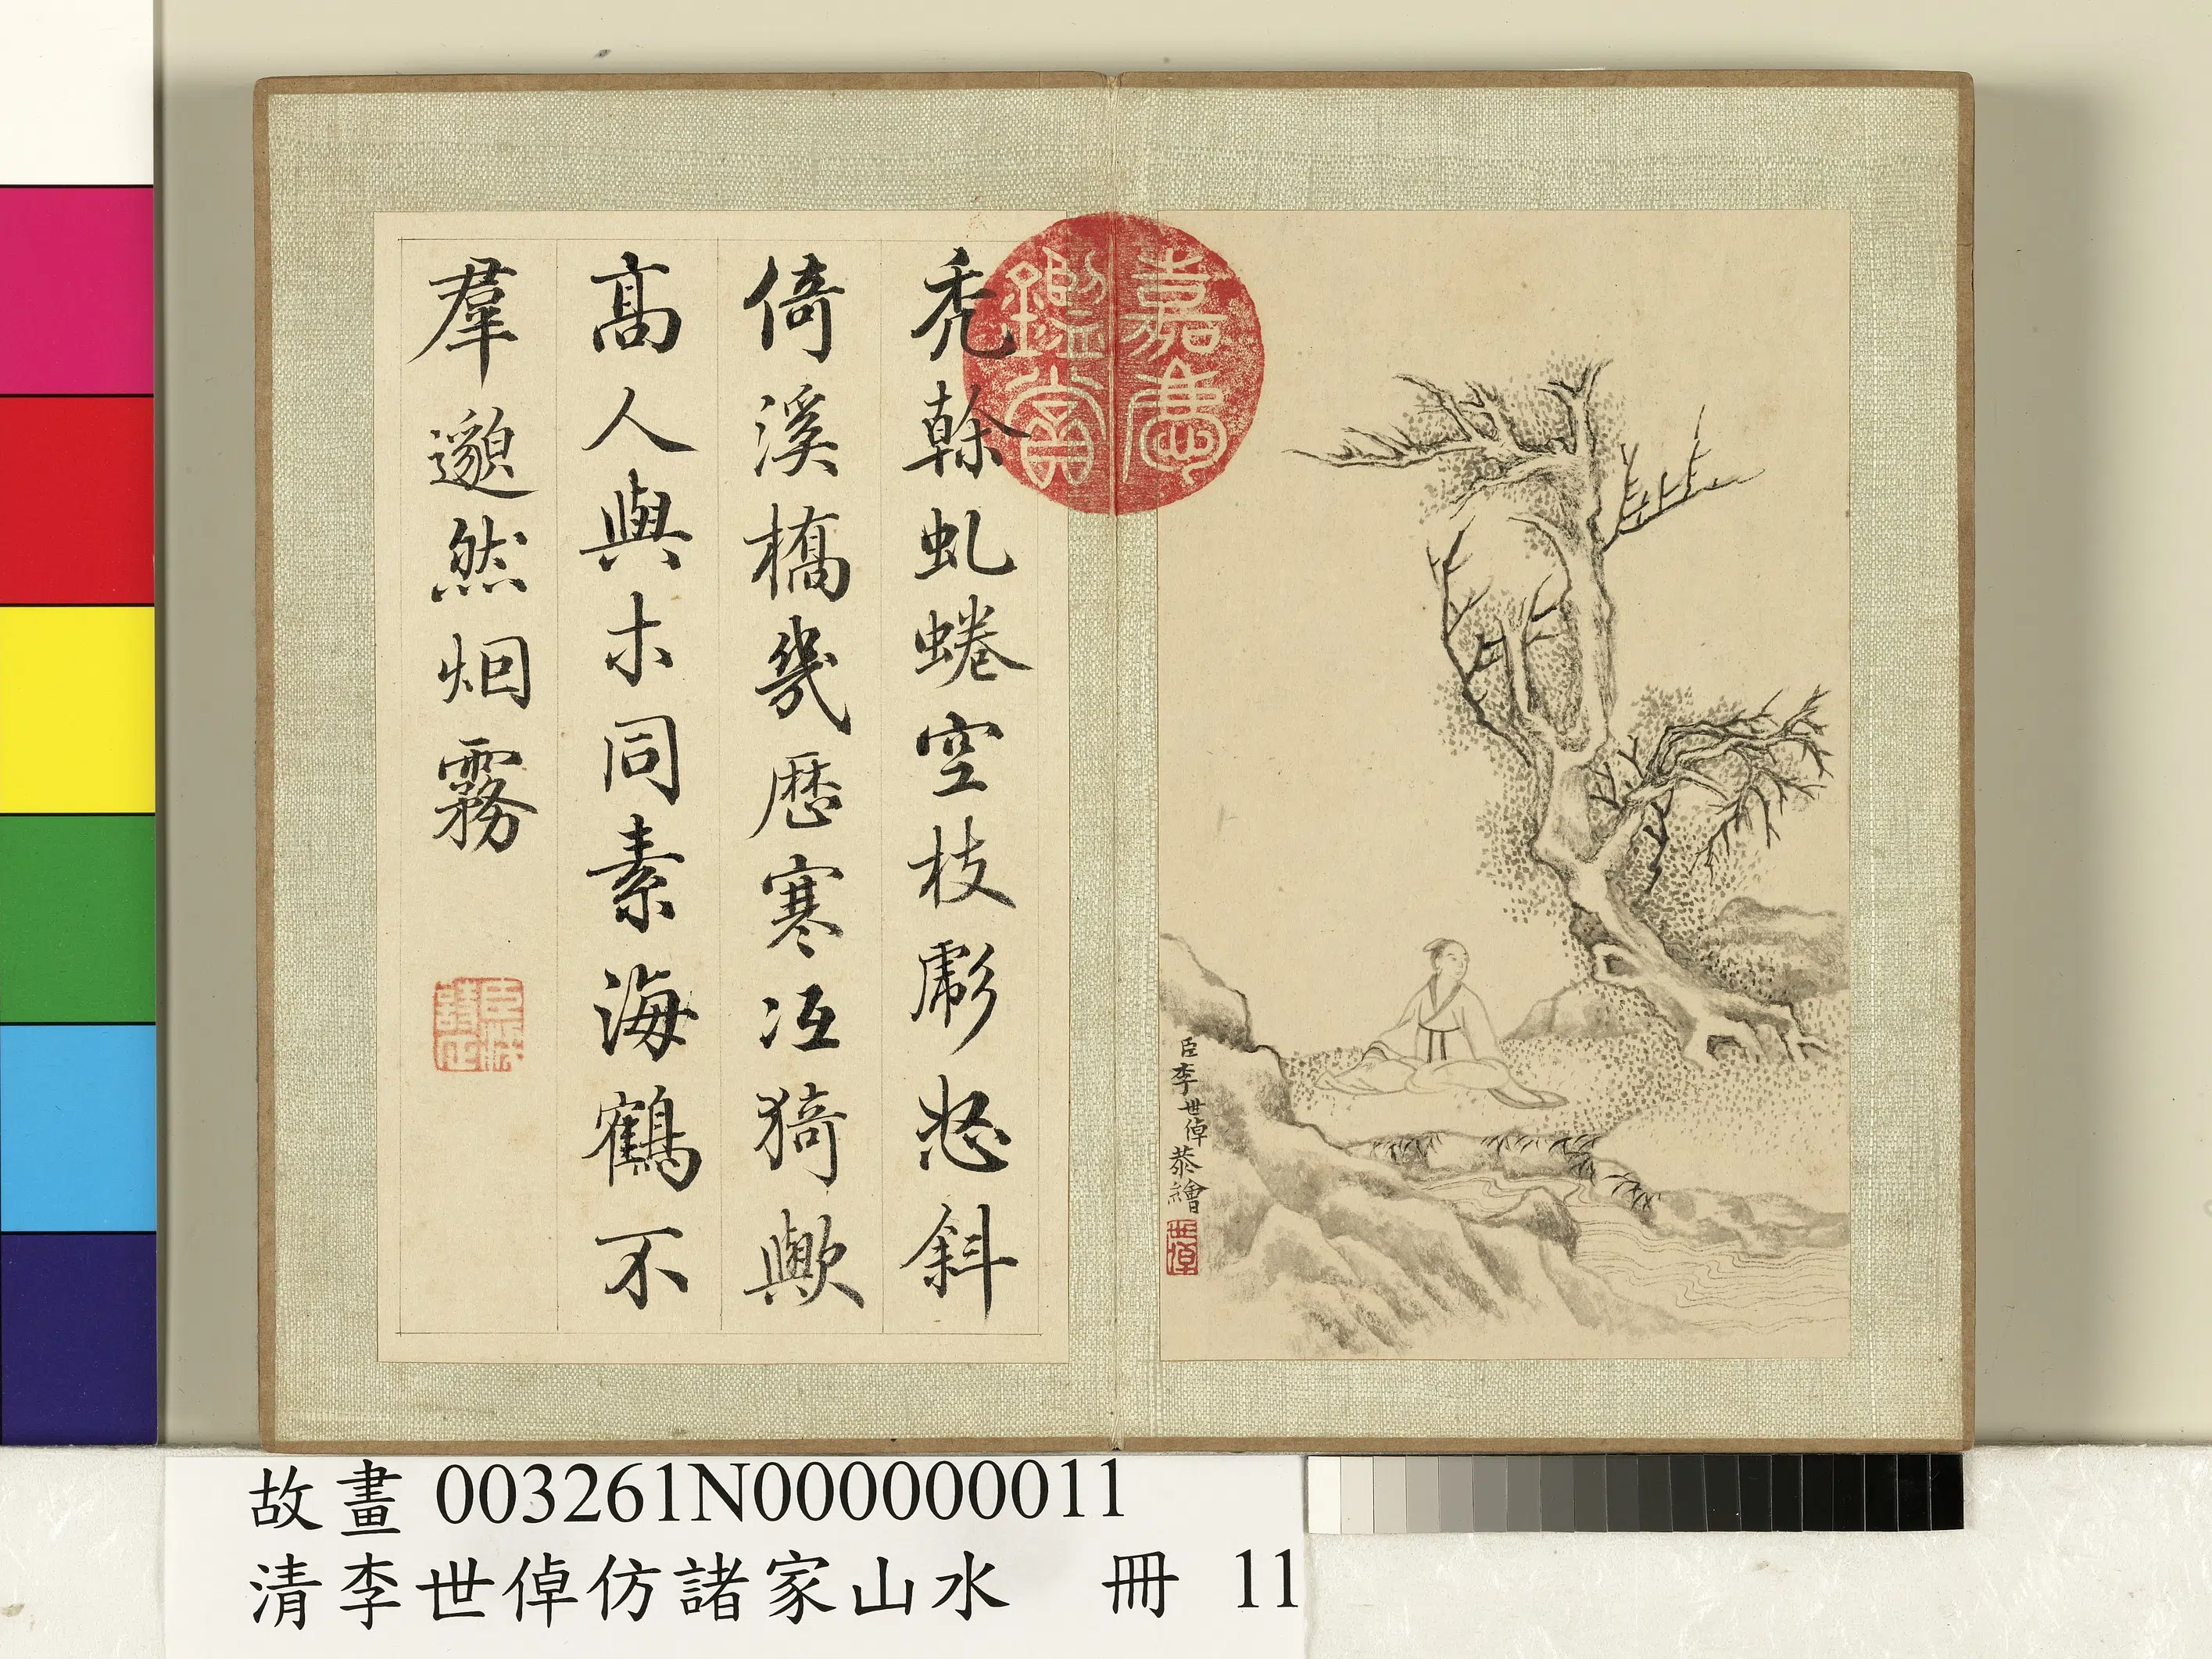 嘉慶
鑑賞
臣李世倬恭繪
世倬
禿榦虬蜷空枝彪怒斜
倚溪橋幾歷寒沍猗歟
高人與木同素海鶴不
羣邈然烟霧
臣梁
詩正
故畫 003261N000000011
清李世倬仿諸家山水 冊 11